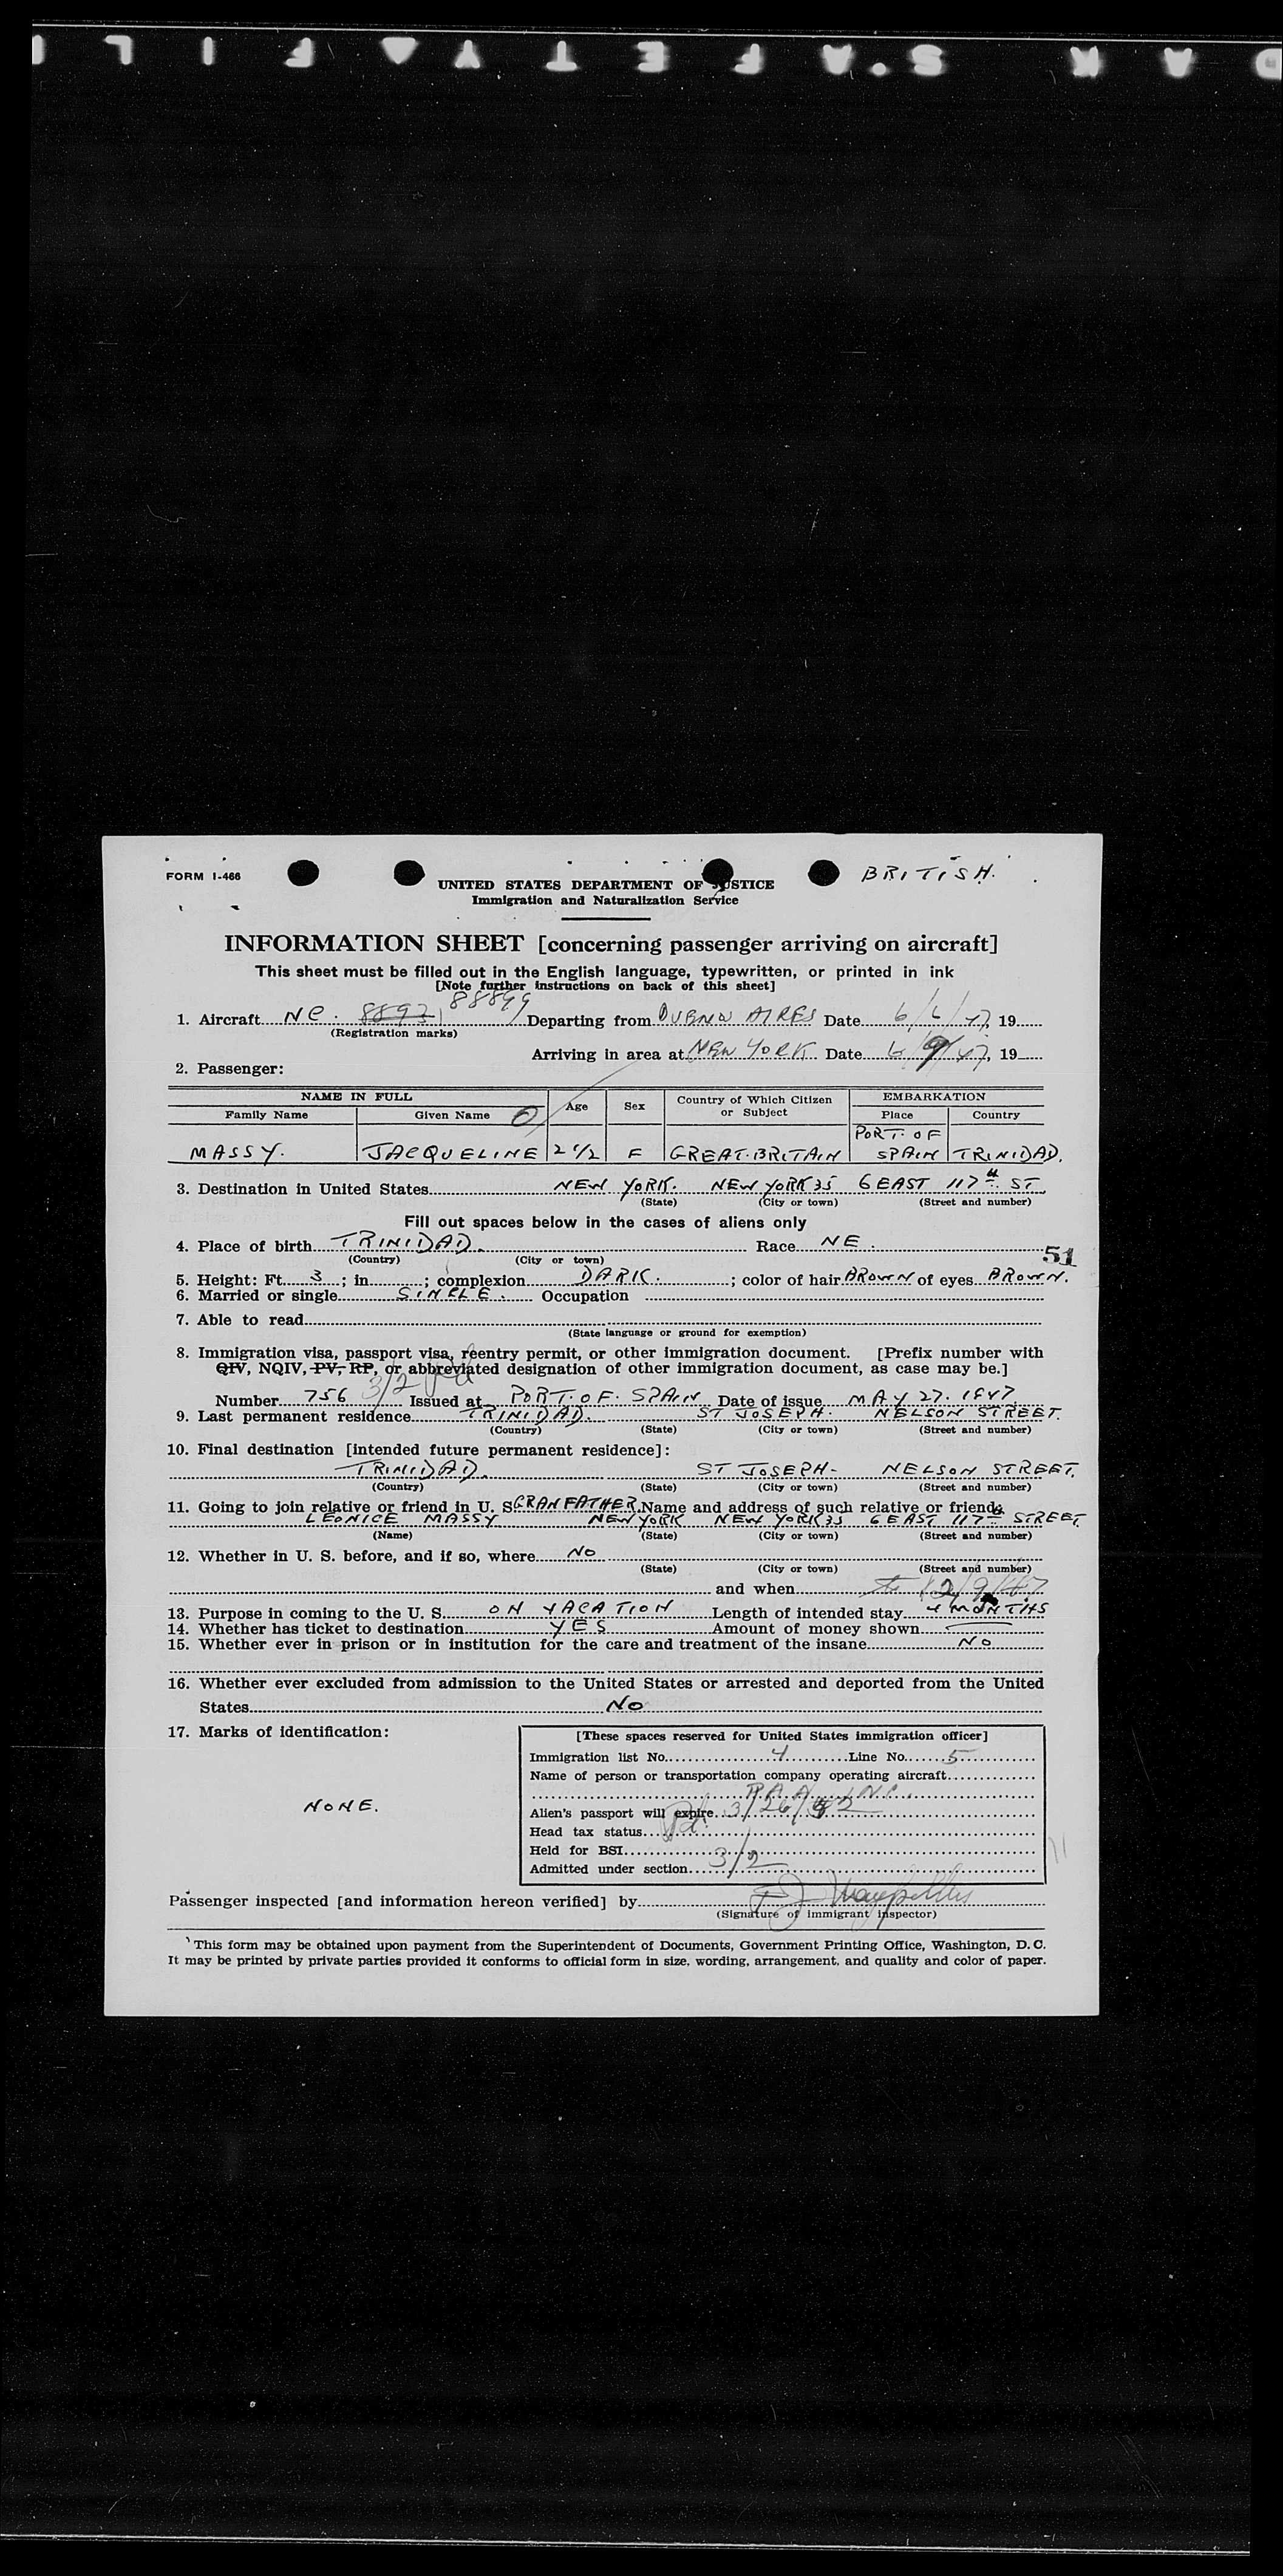 D A K S.A F E T Y ▲ F I L
FORM I-466
BRITISH.
UNITED STATES DEPARTMENT OF JUSTICE
Immigration and Naturalization Service
INFORMATION SHEET [concerning passenger arriving on aircraft]
This sheet must be filled out in the English language, typewritten, or printed in ink
[Note further instructions on back of this sheet]
88899
1. Aircraft NC. 88931 Departing from BUENO AIRES Date 6/6/47, 19
(Registration marks)
Arriving in area at NEW YORK Date 6/9/47, 19
2. Passenger:
NAME IN FULL Age Sex Country of Which Citizen or Subject EMBARKATION
Family Name Given Name Place Country
MASSY. JACQUELINE 2 1/2 F GREAT.BRITAIN PORT.OF SPAIN TRINIDAD.
3. Destination in United States NEW YORK. NEW YORK 35 6 EAST 117th ST.
(State) (City or town) (Street and number)
Fill out spaces below in the cases of aliens only
4. Place of birth TRINIDAD. Race NE.
(Country) (City or town)
51
5. Height: Ft. 3; in.; complexion DARK.; color of hair BROWN of eyes BROWN.
6. Married or single SINPLE. Occupation
7. Able to read
(State language or ground for exemption)
8. Immigration visa, passport visa, reentry permit, or other immigration document. [Prefix number with
QIV, NQIV, PV, RP, or abbreviated designation of other immigration document, as case may be.]
3/2
Number 756 Issued at PORT.OF.SPAIN Date of issue MAY 27.1947
9. Last permanent residence TRINIDAD. ST JOSEPH. NELSON STREET.
(Country) (State) (City or town) (Street and number)
10. Final destination [intended future permanent residence]:
TRINIDAD. ST JOSEPH- NELSON STREET.
(Country) (State) (City or town) (Street and number)
11. Going to join relative or friend in U. S. GRANFATHER Name and address of such relative or friend:
LEONICE MASSY NEW YORK NEW YORK 35 6 EAST 117th STREET
(Name) (State) (City or town) (Street and number)
12. Whether in U. S. before, and if so, where NO
(State) (City or town) (Street and number)
and when to 12/9/47
13. Purpose in coming to the U. S. ON VACATION Length of intended stay 4 MONTHS
14. Whether has ticket to destination YES Amount of money shown
15. Whether ever in prison or in institution for the care and treatment of the insane NO
16. Whether ever excluded from admission to the United States or arrested and deported from the United
States NO
17. Marks of identification:
NONE.
[These spaces reserved for United States immigration officer]
Immigration list No. 4 Line No. 5
Name of person or transportation company operating aircraft
P.A.A. INC.
Alien's passport will expire 3/26/52
Head tax status
Held for BSI
Admitted under section 3/2
Passenger inspected [and information hereon verified] by
(Signature of immigrant inspector)
This form may be obtained upon payment from the Superintendent of Documents, Government Printing Office, Washington, D. C.
It may be printed by private parties provided it conforms to official form in size, wording, arrangement, and quality and color of paper.